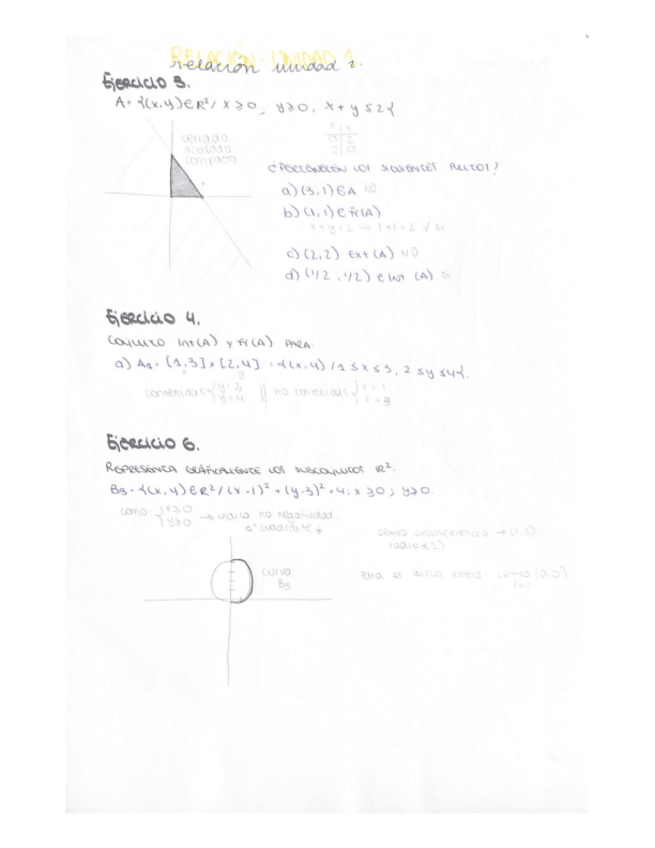 RELACIÓN UNIDAD 1
relación unidad 2.
Ejercicio 3.
A= {(x,y)∈R²/ x≥0, y≥0, x+y≤2}
cerrado
acotado
compacto
x y
0 2
2 0
¿PERTENECEN LOS SIGUIENTES PUNTOS?
a) (3,1)∈A NO
b) (1,1)∈Fr(A)
x+y=2 → 1+1=2 √ Si
c) (2,2) Ext (A) NO
d) (1/2, 1/2) ∈ Int (A) Si
Ejercicio 4.
CONJUNTO INT(A) y Fr(A) PARA:
a) A1= [1,3]x[2,4] = {(x,y) / 1≤x≤3, 2≤y≤4}.
x y
contenidas {y=2 y=4 || no contenidas {x=1 x=3
Ejercicio 6.
REPRESENTA GRÁFICAMENTE LOS SUBCONJUNTOS R².
B3= {(x,y)∈R²/(x-1)²+(y-3)²=4; x≥0; y≥0.
como {x≥0 y≥0 → indica no negatividad
1º cuadrante ↓
centro circunferencia → (1,3)
radio (2)
curva
B3
Para el centro (0,0)